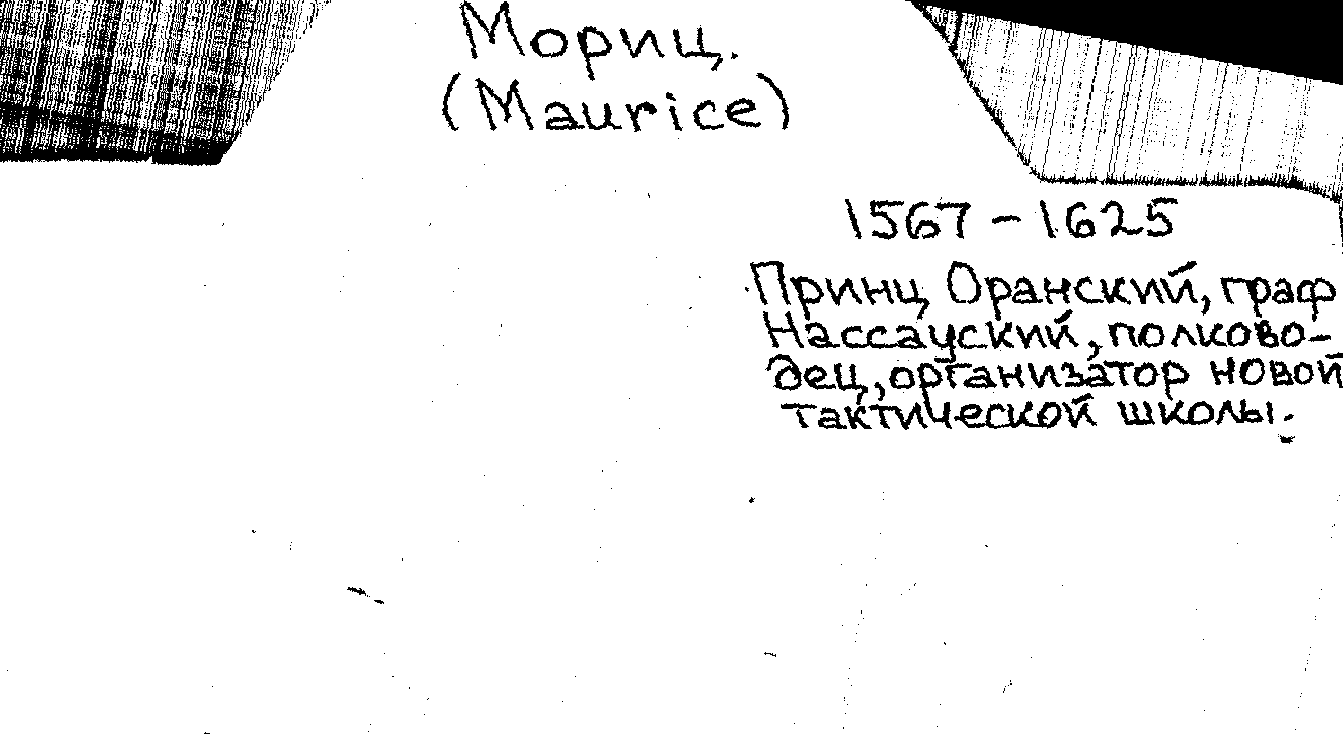 Мориц.
(Maurice)
1567 - 1625
Принц Оранский, граф
Нассауский, полково-
дец, организатор новой
тактической школы.